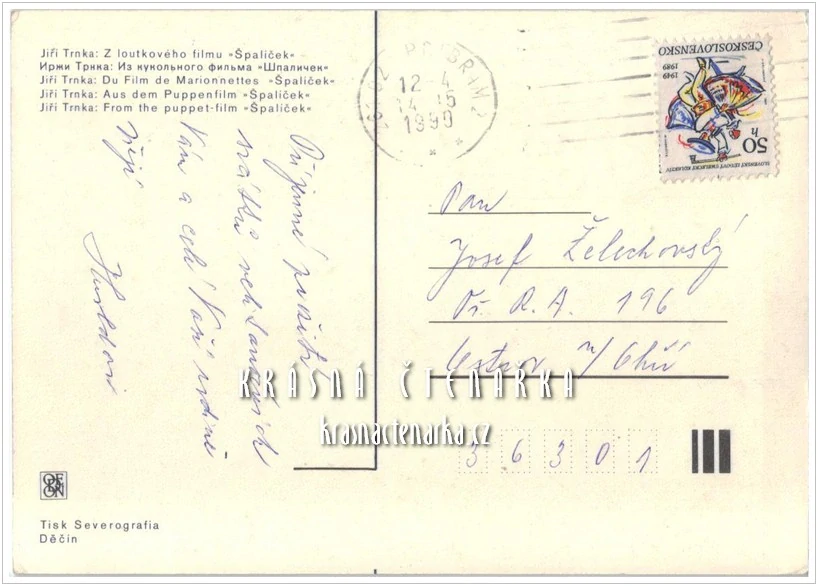 Jiří Trnka: Z loutkového filmu »Špalíček«
Иржи Трнка: Из кукольного фильма «Шпаличек»
Jiří Trnka: Du Film de Marionnettes »Špalíček«
Jiří Trnka: Aus dem Puppenfilm »Špalíček«
Jiří Trnka: From the puppet-film »Špalíček«
PŘÍBRAM 2
12-4
14-15
1990
ČESKOSLOVENSKO
1949 1989
50 h
SLOVENSKÝ ĽUDOVÝ UMELECKÝ KOLEKTÍV
Příjemné prožití
svátků velikonočních
Vám a celé Vaší rodině
přejí
Pan
Josef Želechovský
Př. R. A. 196
Ostrov n/Ohří
KRÁSNÁ ČTENÁRKA
krasnactenarka.cz
36301
ODEON
Tisk Severografia
Děčín